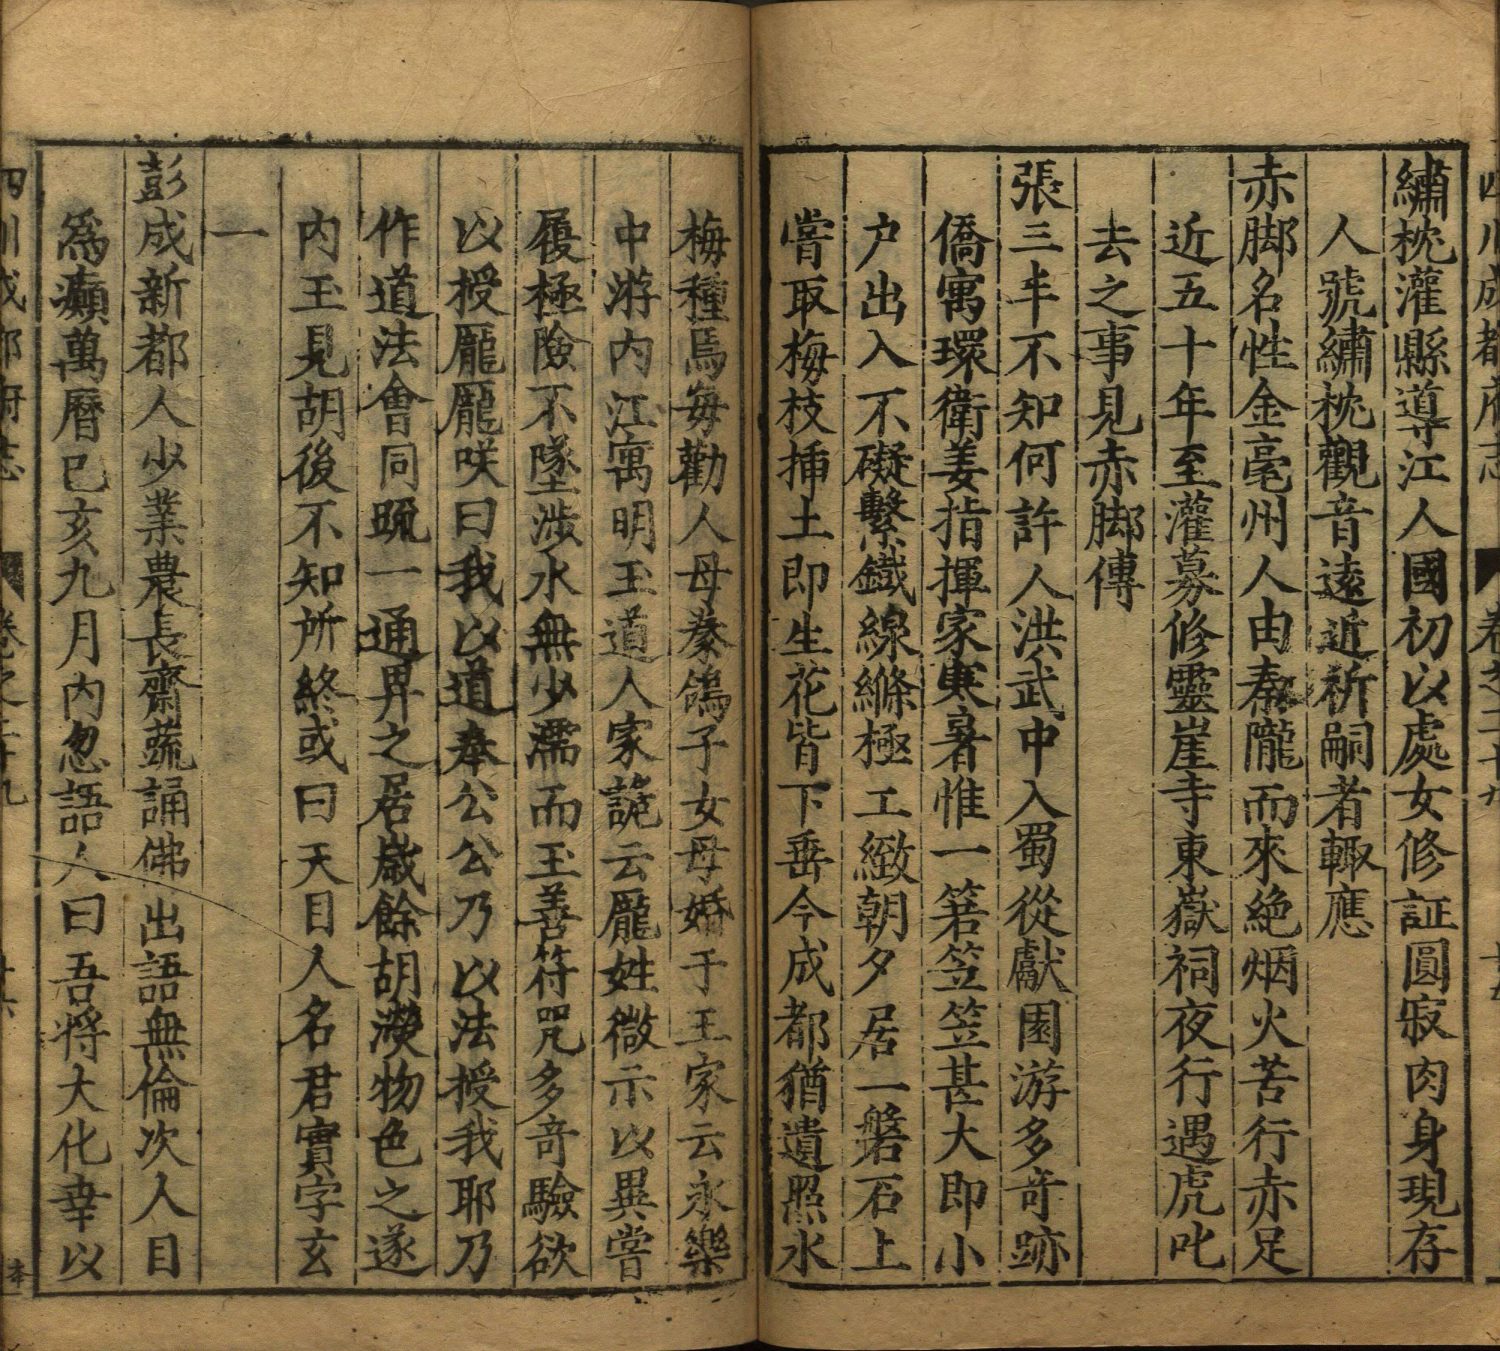 繡枕灌縣導江人國初以處女修証圓寂肉身現存
人號繡枕觀音遠近祈嗣者輙應
赤脚名性金亳州人由秦隴而來絶烟火苦行赤足
近五十年至灌募修靈崖寺東嶽祠夜行遇虎叱
去之事見赤脚傳
張三丰不知何許人洪武中入蜀從獻園游多竒跡
僑寓環衛姜指揮家寒暑惟一箬笠笠甚大即小
户出入不礙繫鐵線縧極工緻朝夕居一磐石上
嘗取梅枝挿土即生花皆下垂今成都猶遺照水
梅種焉毎勸人母豢鴿子女母婚于王家云永樂
中游内江寓明玉道人家詭云龎姓微示以異嘗
履極險不墜渉水無少濡而玉善符咒多竒驗欲
以授龎龎咲曰我以道奉公公乃以法授我耶乃
作道法會同疏一通畀之居嵗餘胡濙物色之遂
内玉見胡後不知所終或曰天目人名君實字玄
一
彭成新都人少業農長齋蔬誦佛出語無倫次人目
爲癲萬曆已亥九月内忽語人曰吾將大化幸以
四川成都府志
卷之三十九